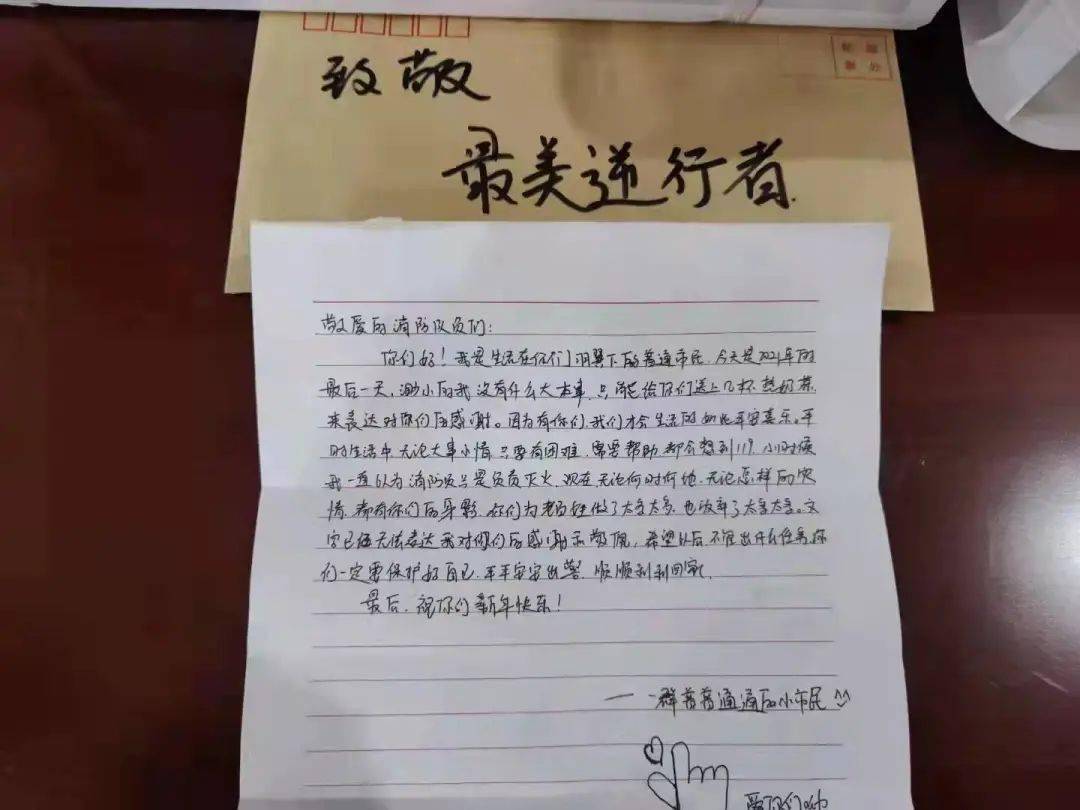 贴 邮
票 处
致敬
最美逆行者.
敬爱的消防队员们:
你们好！我是生活在你们羽翼下的普通市民,今天是2021年的
最后一天,渺小的我没有什么大本事,只能给你们送上几杯热奶茶
来表达对你们的感谢。因为有你们,我们才会生活的如此平安喜乐。平
时生活中,无论大事小情,只要有困难,需要帮助,都会想到119,小时候
我一直以为消防员只是负责灭火,现在无论何时何地,无论怎样的灾
情,都有你们的身影,你们为老百姓做了太多太多,也放弃了太多太多。文
字已经无法表达我对你们的感谢和敬佩,希望以后,不管出什么任务,你
们一定要保护好自己,平平安安出警,顺顺利利回家.
最后,祝你们新年快乐!
——一群普普通通的小市民^^
爱你们哟